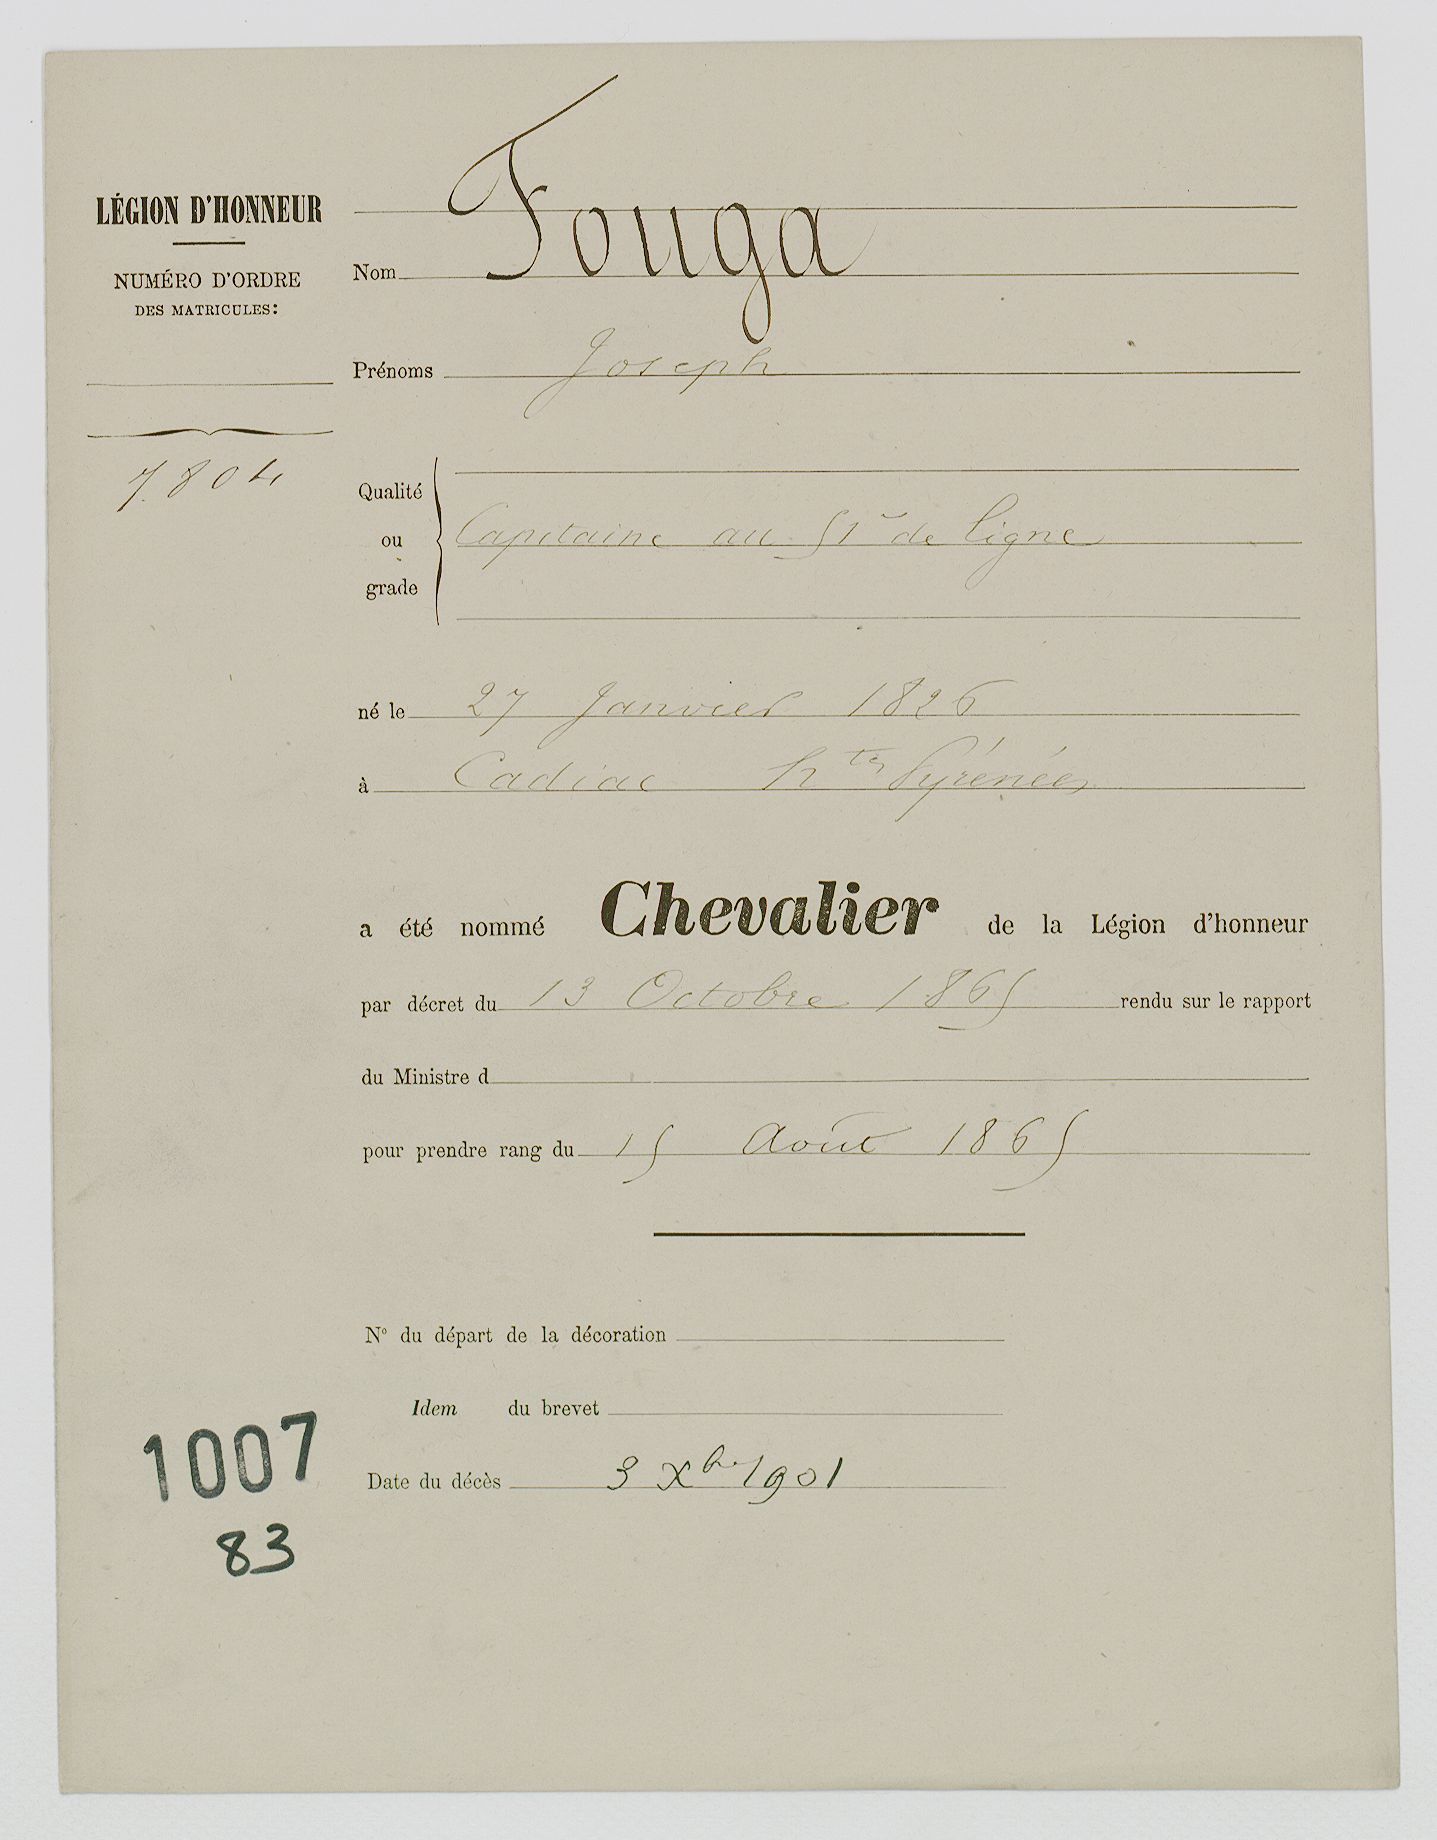 LÉGION D'HONNEUR
NUMÉRO D'ORDRE
DES MATRICULES:
7804
Nom Fouga
Prénoms Joseph
Qualité
ou
grade
Capitaine au 51e de ligne
né le 27 Janvier 1826
à Cadiac htes Pyrénées
a été nommé Chevalier de la Légion d'honneur
par décret du 13 Octobre 1865 rendu sur le rapport
du Ministre d
pour prendre rang du 15 Août 1865
No du départ de la décoration
Idem du brevet
Date du décès 3 Xbre 1901
1007
83